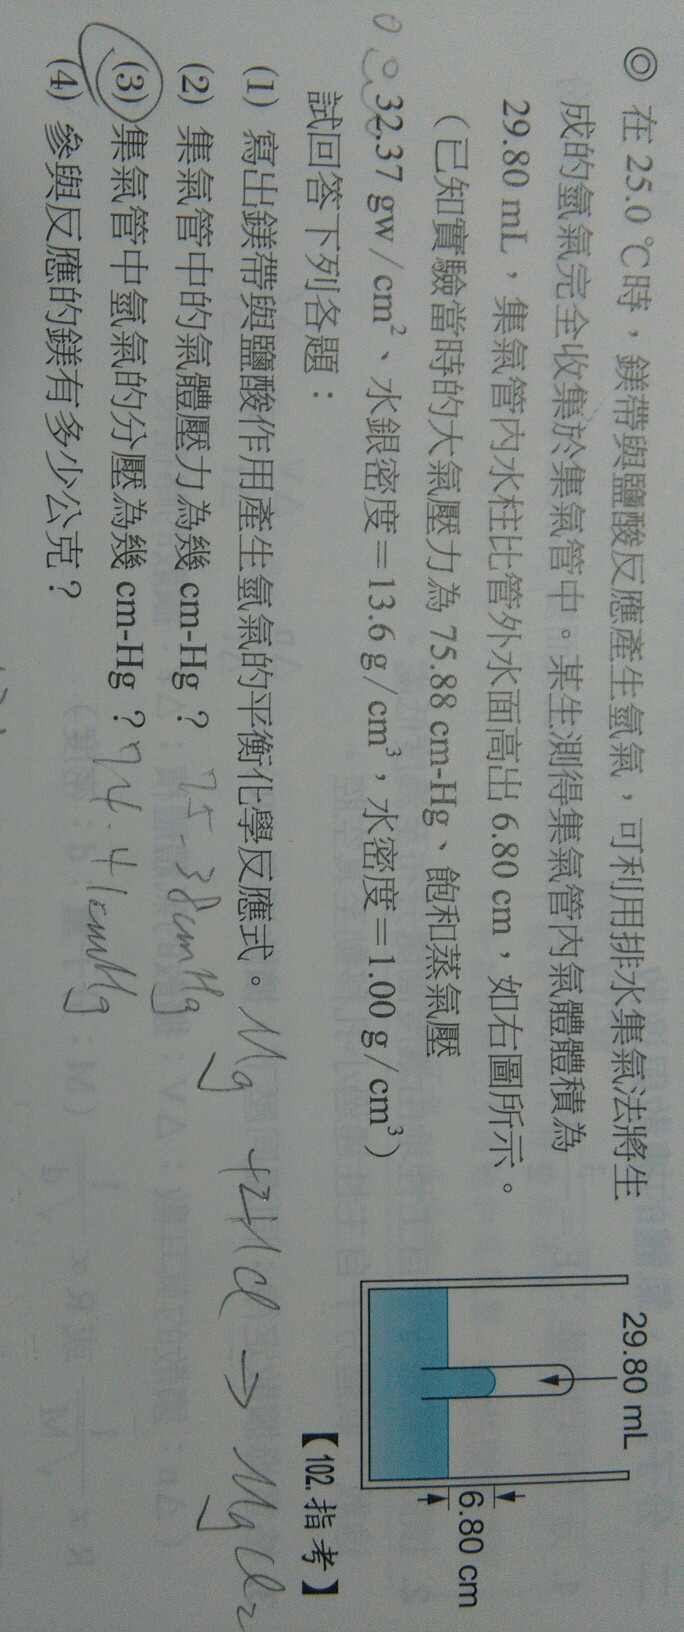 ◎ 在 25.0 ℃時，鎂帶與鹽酸反應產生氫氣，可利用排水集氣法將生
成的氫氣完全收集於集氣管中。某生測得集氣管內氣體體積為
29.80 mL，集氣管內水柱比管外水面高出 6.80 cm，如右圖所示。
（已知實驗當時的大氣壓力為 75.88 cm-Hg、飽和蒸氣壓
32.37 gw / cm²、水銀密度＝13.6 g / cm³，水密度＝1.00 g / cm³）
試回答下列各題：
(1) 寫出鎂帶與鹽酸作用產生氫氣的平衡化學反應式。 Mg +2HCl → MgCl₂
(2) 集氣管中的氣體壓力為幾 cm-Hg？ 75-38cmHg
(3) 集氣管中氫氣的分壓為幾 cm-Hg？ 74.41cmHg
(4) 參與反應的鎂有多少公克？
29.80 mL
6.80 cm
【102.指考】